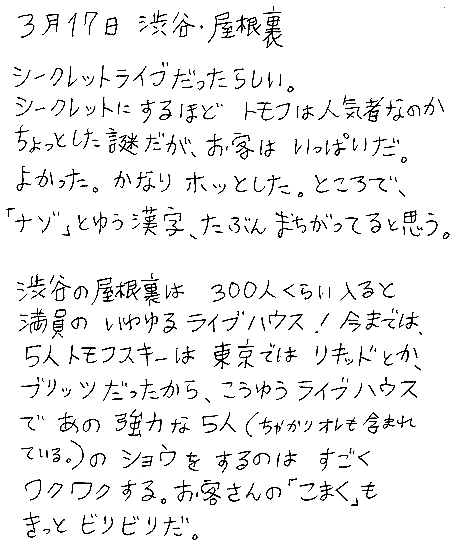 3月17日 渋谷・屋根裏
シークレットライブだったらしい。
シークレットにするほど トモフは人気者なのか
ちょっとした謎だが、お客は いっぱいだ。
よかった。かなり ホッとした。ところで、
「ナゾ」とゆう漢字、たぶん まちがってると思う。
渋谷の屋根裏は 300人くらい入ると
満員の いわゆる ライブハウス！今までは、
5人トモフスキーは 東京では リキッドとか、
ブリッツだったから、こうゆう ライブハウス
で あの 強力な 5人（ちゃかりオレも含まれ
ている。）の ショウを するのは すごく
ワクワクする。お客さんの「こまく」も
きっと ビリビリだ。